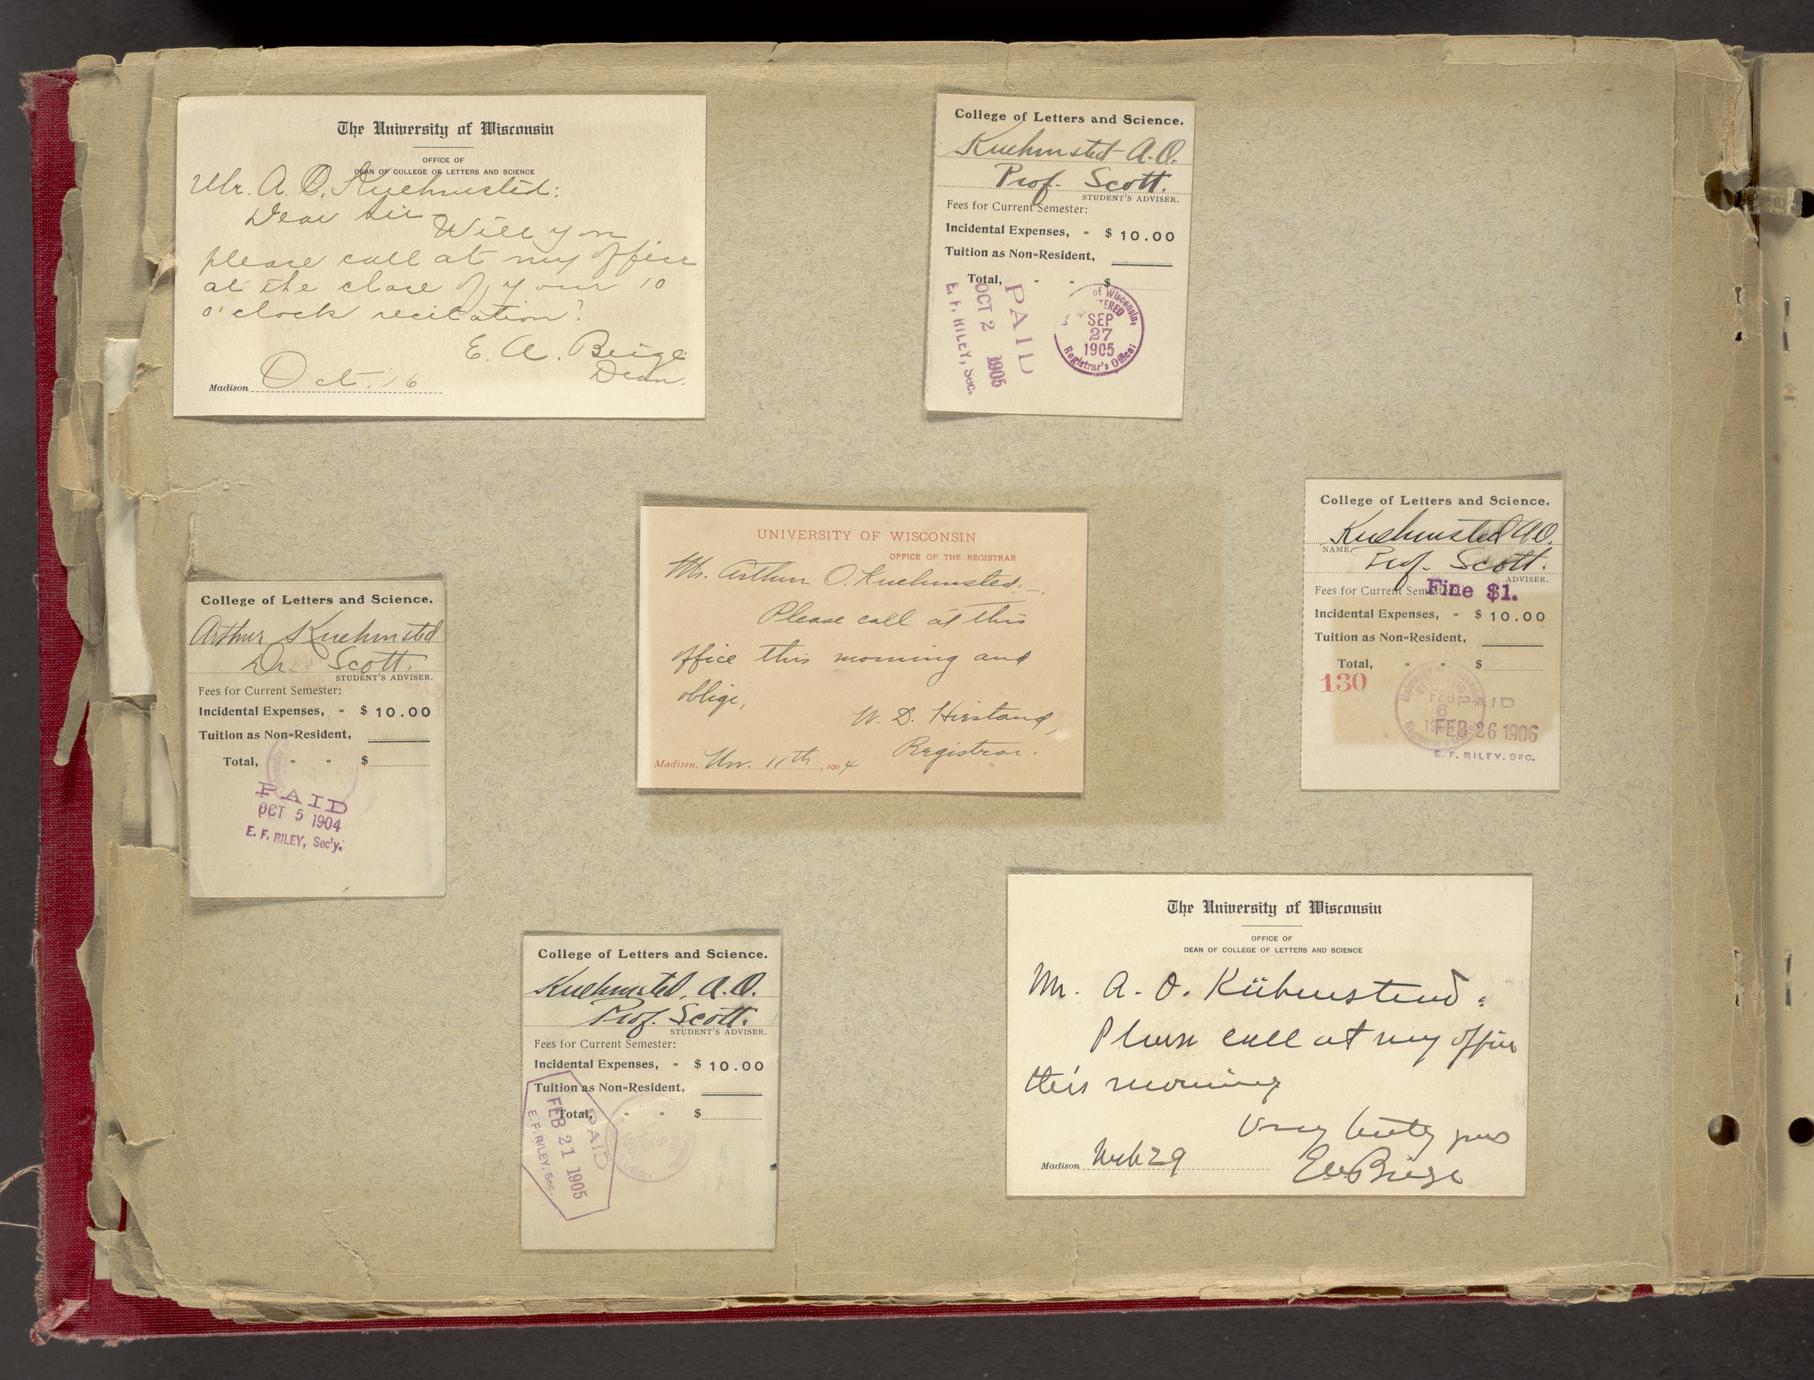 The University of Wisconsin
OFFICE OF
DEAN OF COLLEGE OF LETTERS AND SCIENCE
Mr. A. O. Kuehmsted:
Dear Sir
Will you
please call at my office
at the close of your 10
o'clock recitation?
E. A. Birge
Dean.
Madison Oct. 16
College of Letters and Science.
Kuehmsted A.O.
Prof. Scott.
STUDENT'S ADVISER.
Fees for Current Semester:
Incidental Expenses, - $ 10.00
Tuition as Non-Resident,
Total, - - $
PAID
OCT 2 1905
E. F. RILEY, Sec.
of Wisconsin,
SEP
27
1905
Registrar's Office
College of Letters and Science.
Arthur Kuehmsted
Dr. Scott.
STUDENT'S ADVISER.
Fees for Current Semester:
Incidental Expenses, - $ 10.00
Tuition as Non-Resident,
Total, - - $
PAID
OCT 5 1904
E. F. RILEY, Sec'y.
UNIVERSITY OF WISCONSIN
OFFICE OF THE REGISTRAR
Mr. Arthur O. Kuehmsted:-
Please call at this
office this morning and
oblige,
W. D. Hiestand,
Registrar.
Madison, Nov. 11th, 1904
College of Letters and Science.
Kuehmsted A.O.
NAME
Prof. Scott.
ADVISER.
Fees for Current Sem
Fine $1.
Incidental Expenses, - $ 10.00
Tuition as Non-Resident,
Total, - - $
130
PAID
FEB 26 1906
E. F. RILEY, SEC.
College of Letters and Science.
Kuehmsted, A.O.
Prof. Scott.
STUDENT'S ADVISER.
Fees for Current Semester:
Incidental Expenses, - $ 10.00
Tuition as Non-Resident,
Total, - - $
PAID
FEB 21 1905
E. F. RILEY, Sec.
The University of Wisconsin
OFFICE OF
DEAN OF COLLEGE OF LETTERS AND SCIENCE
Mr. A. O. Kühmstend:
Please call at my office
this morning
Very truly yours
EA Birge
Madison Mch 29